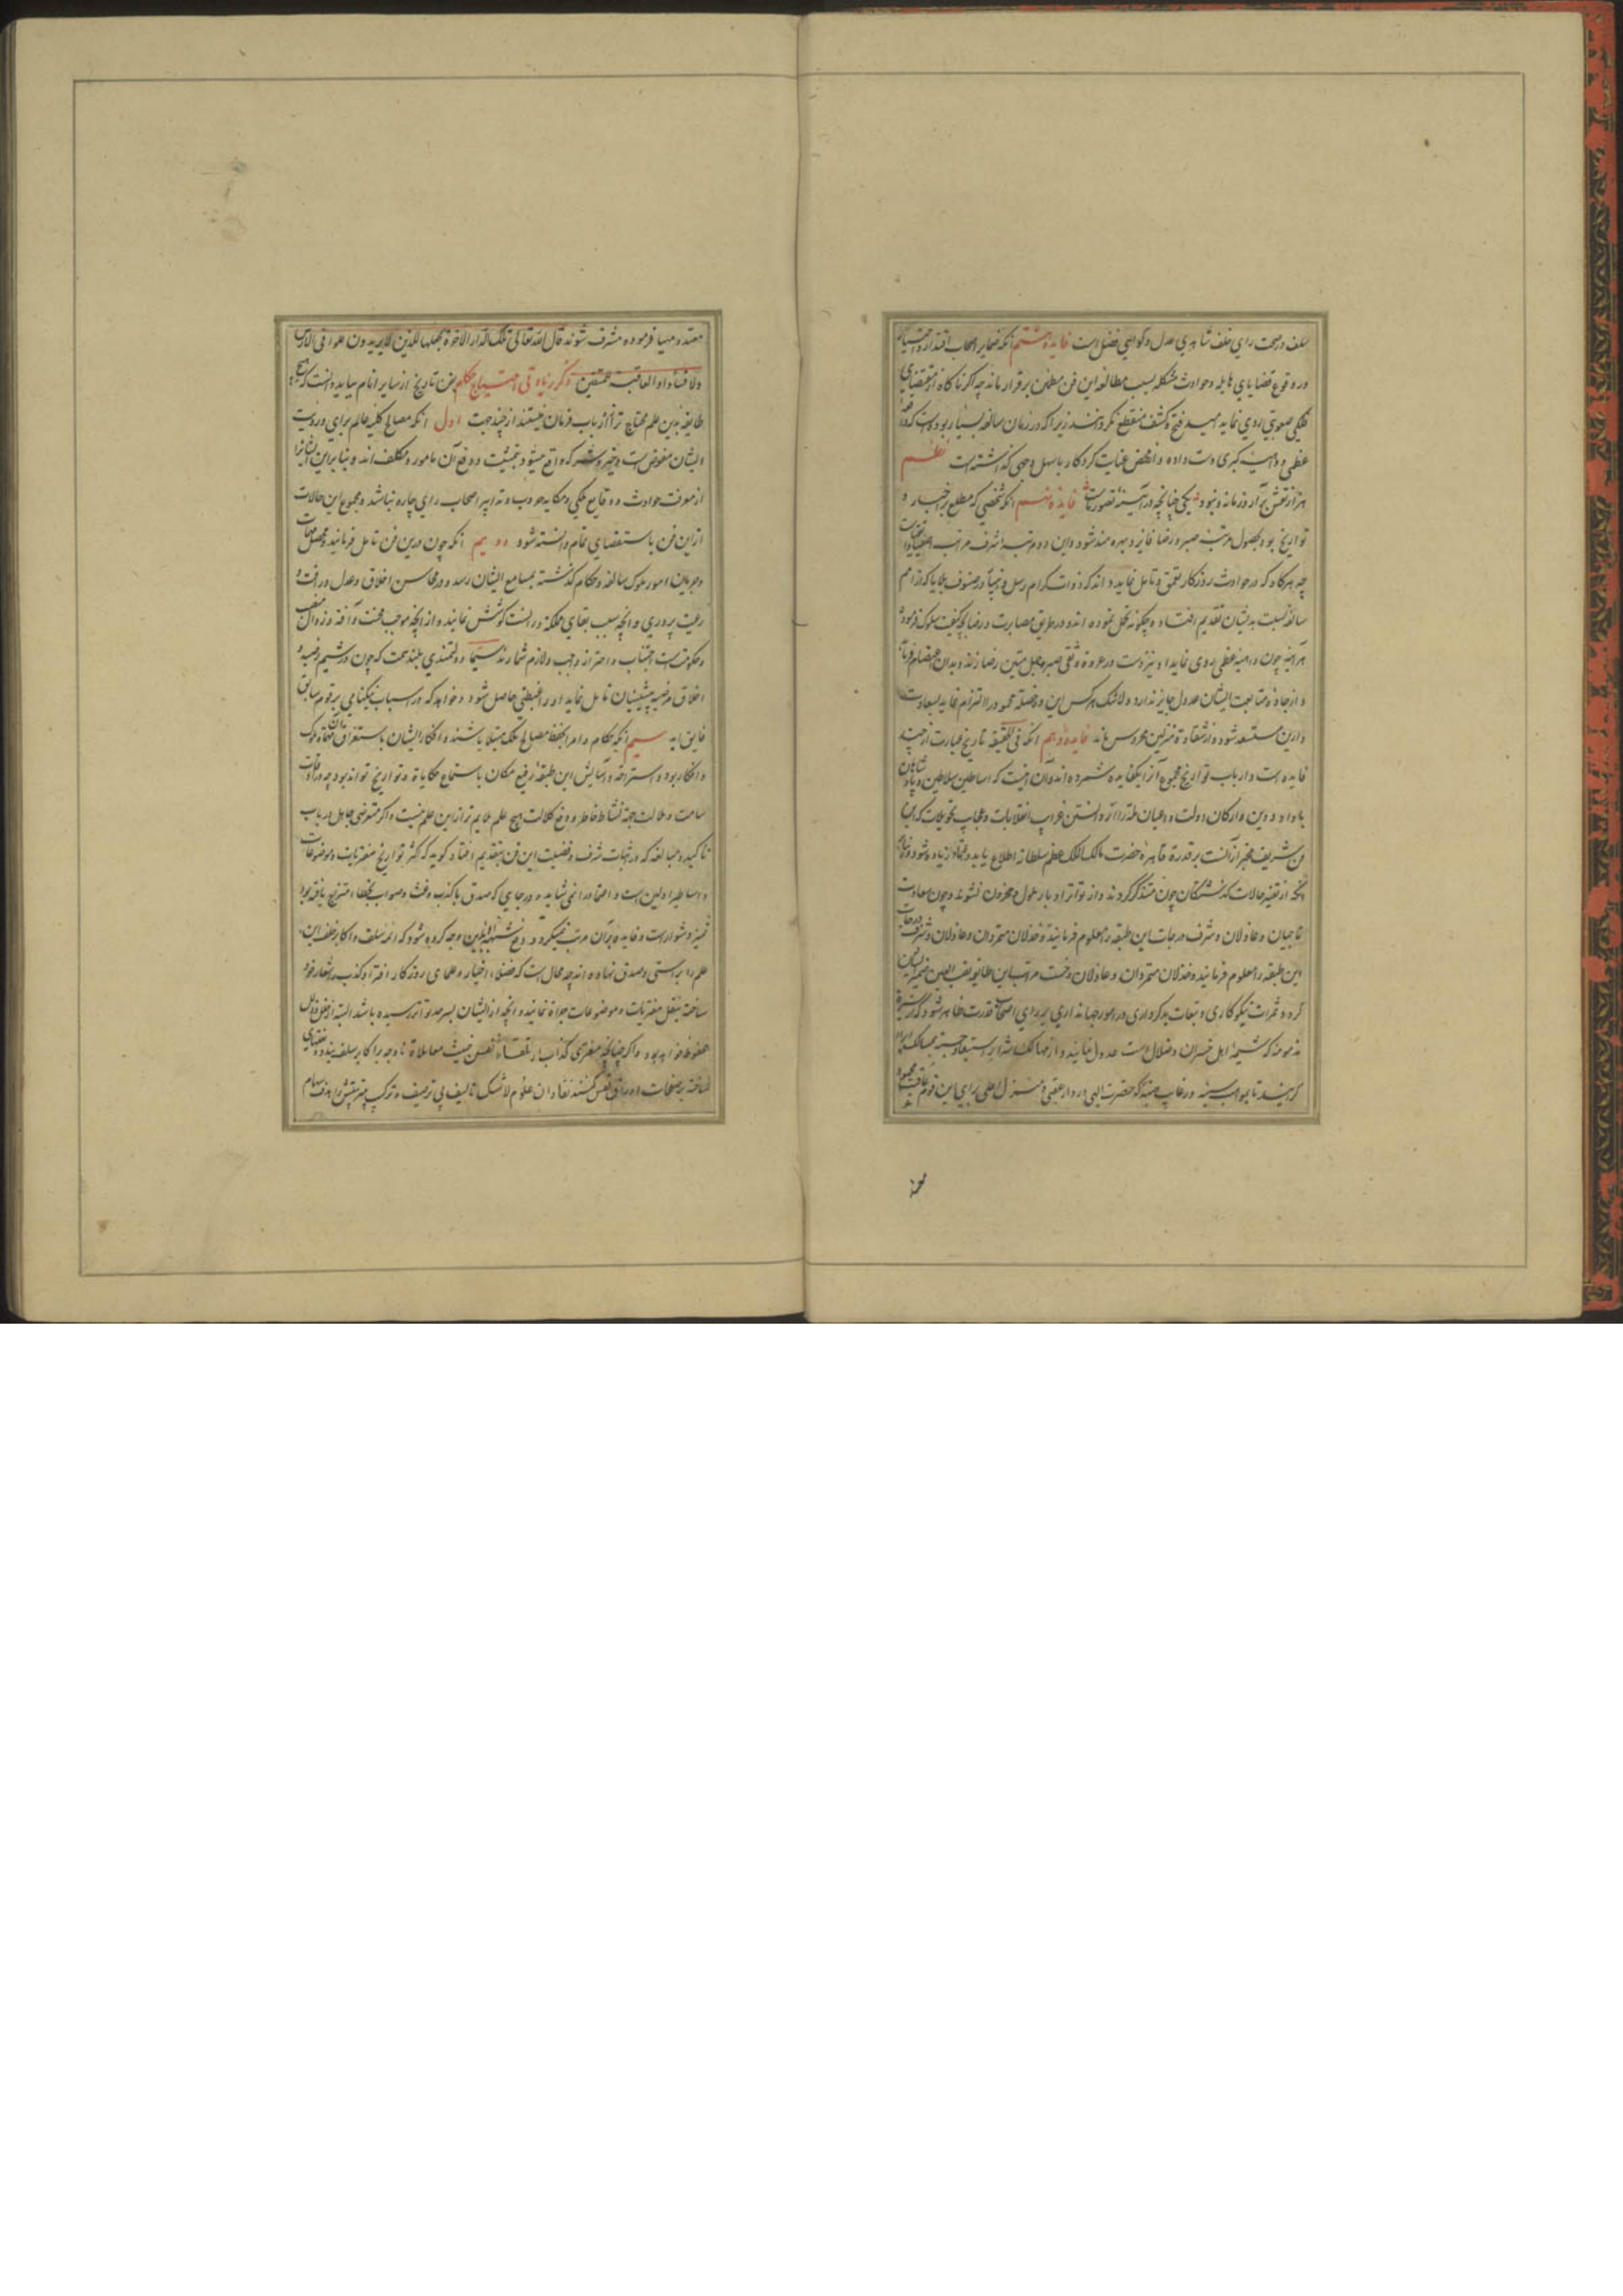 سلف در صحت رای خلف شاهدی عدل و کواهی فضل است فایده هشتم آنکه ضمایر اصحاب اقتدار و اختیار
در وقوع قضایای هایله و حوادث مشکله بسبب مطالعه این فن مطمئن برقرار ماند چه اگر ناکاه از مقتضای
فلکی صعوبتی روی نماید امید فتح و کشف منقطع نکردانند زیرا که در زمان سالفه بسیار بوده است که
عظمی و داهیه کبری دست داده و از محض عنایت کردکار باسهل وجهی گذاشته است نظم
هزار نقش برآرد زمانه و نبود یکی چنانچه در آینه تصور ماست فایده نهم آنکه شخصی که مطلع بر اخبار و
تواریخ بود بحصول مرتبه صبر و رضا فایز و بهره مند شود و این دو مرتبه اشرف مراتب
چه هرکاه که در حوادث روزکار تعمق و تامل نماید داند که ذوات کرام رسل و انبیا در صنوف بلایا که از امم
سالفه نسبت بدیشان تقدیم افتاد و چگونه تحمل نموده اند و در طریق مصابرت و رضا بچه کیفیت سلوک فرموده
هرآینه چون داهیه عظمی روی نماید او نیز دست در عروه وثقی صبر و حبل متین رضا زند و بدان اعتصام
و از جاده متابعت ایشان عدول جایز ندارد و لاشک هرکس این دو خصلة محمود را التزام نماید بسعادت
دارین مستسعد شود و از شقاوة منزلین محروس ماند فایده دهم آنکه فی الحقیقه تاریخ عبارت از چند
فایده است و ارباب تواریخ مجموع آنرا یکفایده شمرده اند و آن اینست که اساطین سلاطین و پادشاهان
با داد و دین و ارکان دولت و اعیان ملت را از دانستن غرایب انقلابات و عجایب تحویلات که
فن شریف مخبر از آنست بر قدرة قاهره حضرت مالک الملک عظم سلطانه اطلاع یابد و اعتماد زیاده شود
آنچه از تغیر حالات گذشتگان چون متذکر گردند و از تواتر ادبار ملول و محزون نشوند و چون سعادت
ناجیان و عادلان و شرف درجات این طبقه را معلوم فرمایند و خذلان متمردان و عادلان و شرف درجات
این طبقه را معلوم فرمایند و خذلان متمردان و عادلان وخست مراتب این طایفه نصب العین ضمیر ایشان
کردد ثمرات نیکوکاری و تبعات بدکرداری در امور جهانداری بر رای اصحاب قدرت ظاهر شود و
مذمومه که شیمه اهل خسران و ضلال است عدول نمایند و از مهالک اشرار استبعاد جسته بمسالک ابرار
گرایند تا بمواهب سنیه و رغایب هنیه که حضرت الهی در دار عقبی و منزل اعلی برای این قوم عاقبت محمود
معتد و مهیا فرموده مشرف شوند قال الله تعالی تلک الدار الآخرة نجعلها للذین لا یریدون علوا فی الارض
ولا فسادا والعاقبة للمتقین ذکر زیادتی احتیاج حکام بفن تاریخ از سایر انام بباید دانست که هیچ
طایفه بدین علم محتاج تر از ارباب فرمان نیستند از چند جهت اول آنکه مصالح کلیه عالم برای و رویت
ایشان مفوض است و خیر و شر که واقع میشود بتمشیت و دفع آن مامور و مکلف اند و بنابراین ایشانرا
از معرفت حوادث و وقایع ملکی و مکاید حروب و تدابیر اصحاب رای چاره نباشد و مجموع این حالات
ازین فن باستقصای تمام دانسته شود دویم آنکه چون درین فن تامل فرمایند و محصل مهمات
و جریان امور ملوک سالفه و حکام گذشته بمسامع ایشان رسد و در محاسن اخلاق و عدل و رافت و
رعیت پروری و آنچه سبب بقای مملکة در آنست کوشش نمایند و از آنچه موجب محنت و آفة و زوال منصب
و حکومت است اجتناب و احتراز واجب و لازم شمارند سیما دولتمندی بلند همت که چون در شیم رضیه و
اخلاق مرضیه پیشینیان تامل نماید او را غبطتی حاصل شود و خواهد که در اسباب نیکنامی بر قوم سابق
فایق آید سیم آنکه حکام و امرا بحفظ مصالح ملک مبتلا باشند و افکار ایشان باستغراق مهمات ملوک
و افکار بود و استراحة و آسایش این طبقه رفیع مکان باستماع حکایاة و تواریخ تواند بود چه
سامت و ملالت جهة نشاط خاطر و دفع کلالت هیچ علم ملایم تر ازین علم نیست و اگر متعرضی جاهل در باب
تاکید و مبالغه که در اثبات شرف و فضیلت این فن بتقدیم افتاد کوید که اکثر تواریخ مفتریات و موضوعات
و اساطیر اولین است و اعتماد را نمی شاید و در جایی که صدق با کذب و غث و صواب بخطا امتزاج یافته بود
تمییز دشوار است و فایده بر آن مرتب نمیگردد دفع شبهة بدین وجه کرده شود که ائمه سلف و اکابر خلف این
علم را بر راستی و صدق نهاده اند چه محال است که فضلاء اخیار و علمای روزگار افترا و کذب را شعار خود
ساخته بنقل مفتریات و موضوعات جراة نمایند و آنچه از ایشان بسرحد تواتر رسیده باشد البته از خلل و زلل
محفوظ خواهد بود و اگر چنانچه مفتری کذاب از تلقاء نفس خبیث معاملاة ناوجه را باکابر سلف
ساخته بر صفحات اوراق نقش کنند نقادان علوم لاشک تالیف بی ترصیف و ترکیب پر نقش را هدف سهام